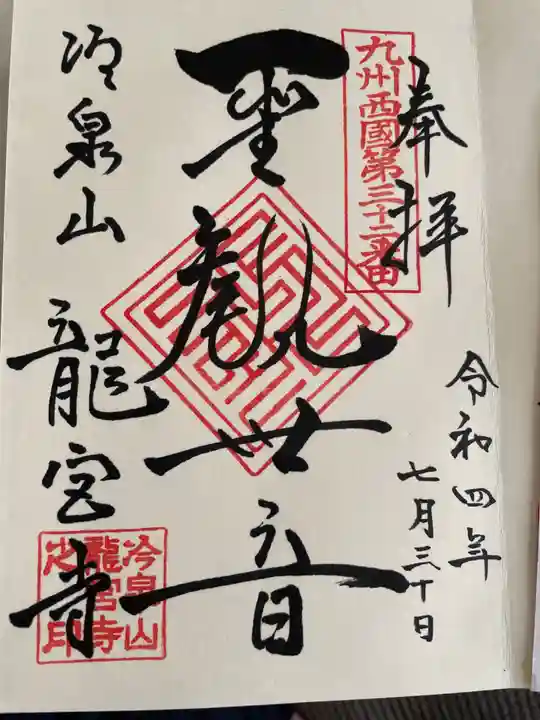 奉拝
九州西國第三十二番
令和四年
七月三十日
聖観世音
冷泉山
龍宮寺
冷泉山
龍宮寺
之印